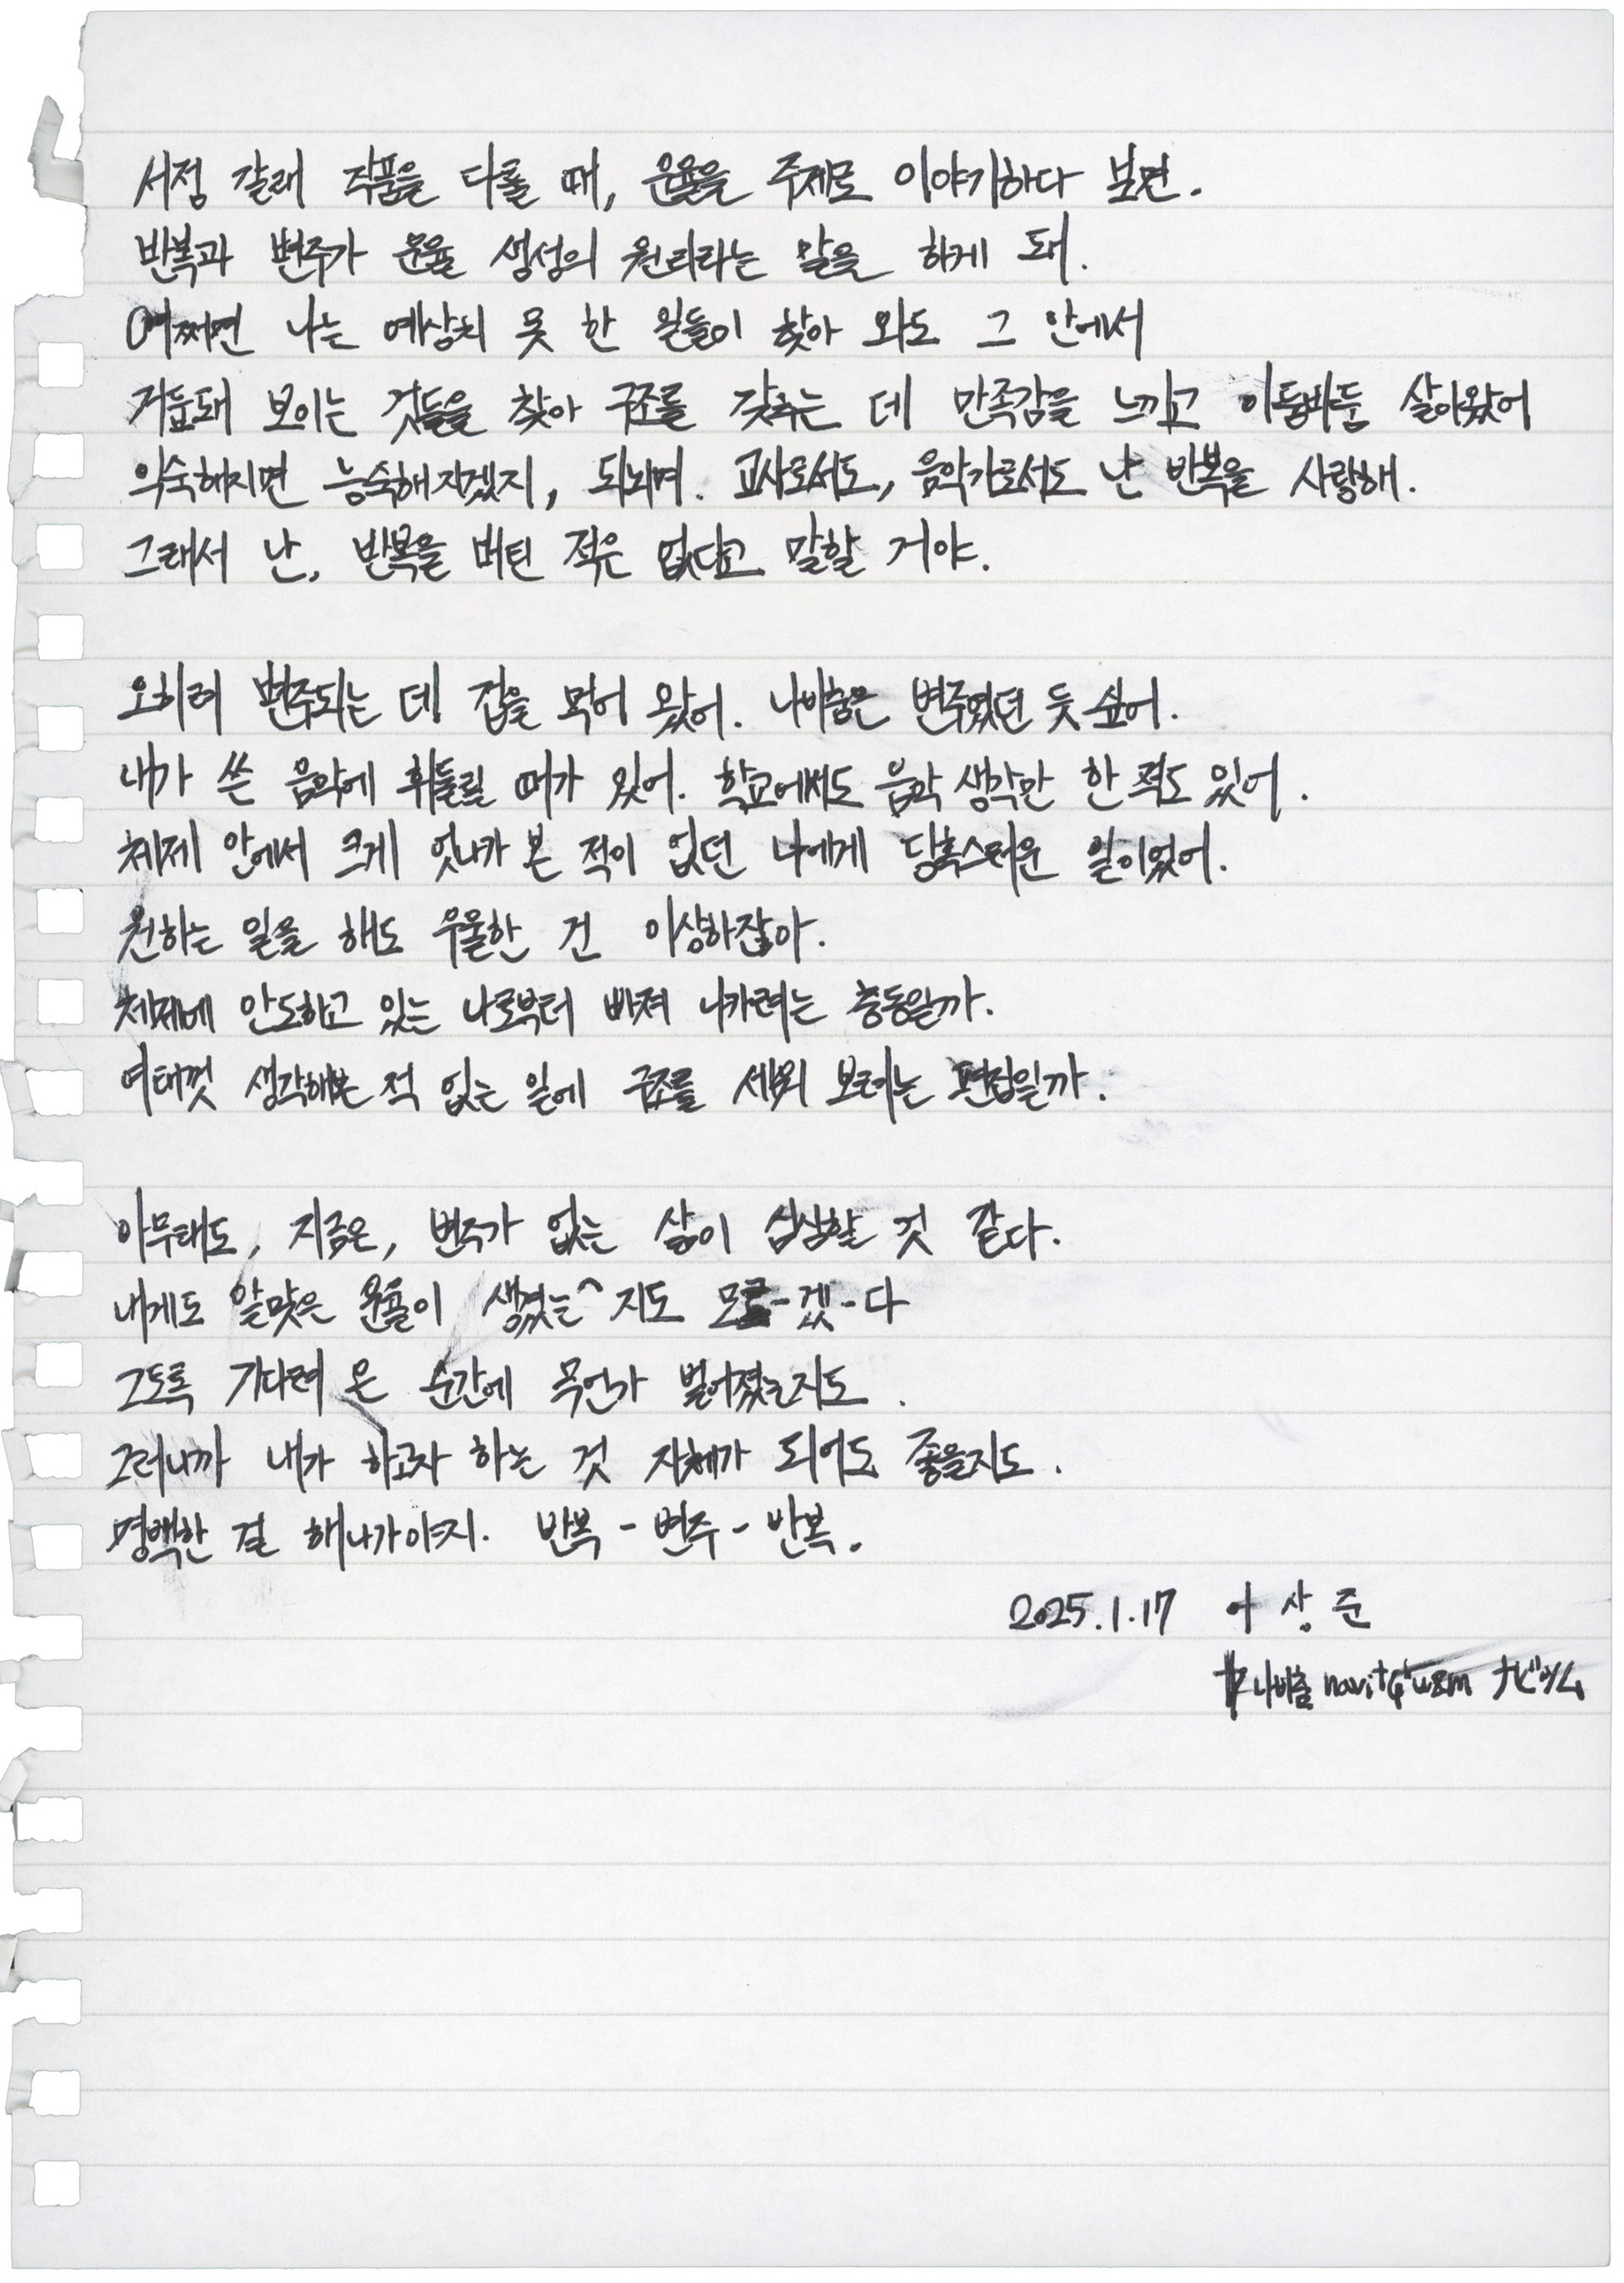 서정 갈래 작품을 다룰 때, 운율을 주제로 이야기하다 보면.
반복과 변주가 운율 생성의 원리라는 말을 하게 돼.
어쩌면 나는 예상치 못 한 일들이 찾아 와도 그 안에서
거듭돼 보이는 것들을 찾아 구조를 갖추는 데 만족감을 느끼고 아등바등 살아왔어
익숙해지면 능숙해지겠지, 되뇌며. 교사로서도, 음악가로서도 난 반복을 사랑해.
그래서 난, 반복을 버틴 적은 없다고 말할 거야.
오히려 변주되는 데 겁을 먹어 왔어. 나비춤은 변주였던 듯 싶어.
내가 쓴 음악에 휘둘릴 때가 있어. 학교에서도 음악 생각만 한 적도 있어.
체제 안에서 크게 엇나가 본 적이 없던 나에게 당혹스러운 일이었어.
원하는 일을 해도 우울한 건 이상하잖아.
체제에 안도하고 있는 나로부터 빠져 나가려는 충동일까.
여태껏 생각해본 적 없는 일에 구조를 세워 보려는 편집일까.
아무래도, 지금은, 변주가 없는 삶이 심심할 것 같다.
내게도 알맞은 운율이 생겼는^지도 모르-겠-다
그토록 기다려 온 순간에 무언가 벌어졌는지도.
그러니까 내가 하고자 하는 것 자체가 되어도 좋을지도.
명백한 걸 해나가야지. 반복 - 변주 - 반복.
2025.1.17 이상준
나비춤 ナビツム